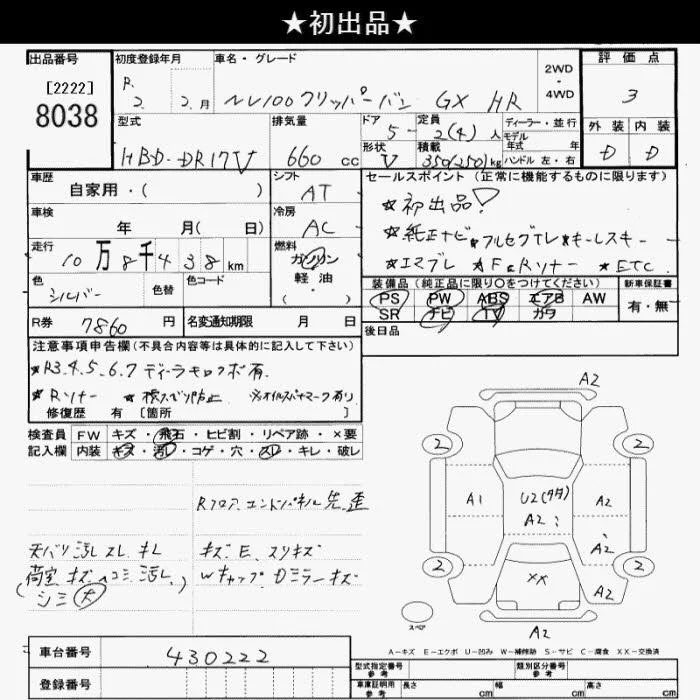 ★初出品★
出品番号 初度登録年月 車名・グレード 2WD - 4WD 評価点
[2222] R. 2. 2.月 NV100クリッパーバン GX HR 3
8038
型式 排気量 ドア 定員 ディーラー・並行 外装 内装
HBD-DR17V 660 cc 5 - 2(4)人 モデル年式 年 D D
形状 積載 ハンドル 左・右
V 350(250)kg
車歴 シフト セールスポイント(正常に機能するものに限ります)
自家用・( ) AT ★初出品!
車検 冷房 ★純正ナビ ★フルセグTV ★キーレスキー
年 月( 日) AC ★エマブレ ★F&Rソナー ★ETC
走行 燃料
10万8千438km ガソリン
軽油
( )
色 色替 色コード 装備品(純正品に限り○をつけてください) 新車保証書
シルバー PS PW ABS エアB AW 有・無
SR ナビ TV カワ
R券 7860円 名変通知期限 月 日 後日品
注意事項申告欄(不具合内容等は具体的に記入して下さい)
★R3.4.5.6.7ディーラーキロクボ有.
★Rソナー ★横スベリ防止 ※オイルスパナマーク有り
修復歴 有 [箇所 ]
検査員 FW キズ・飛石・ヒビ割・リペア跡・×要
記入欄 内装 キズ・汚レ・コゲ・穴・スレ・キレ・破レ
Rフロア、エンドパネル先.歪
天バリ汚レ スレ キレ キズ.E.スリキズ
荷室 キズ ヘコミ 汚レ. Wキャップ Dミラーキズ
(シミ大)
A2
2 2
A1 U2(タタ) A2
A2
A2
2 2
XX A2
スペア
A2
A-キズ E-エクボ U-凹み W-補修跡 S-サビ C-腐食 XX-交換済
車台番号 430222
登録番号
型式指定番号 参考 類別区分番号 参考
車庫証明用 参考 長さ cm 幅 cm 高さ cm